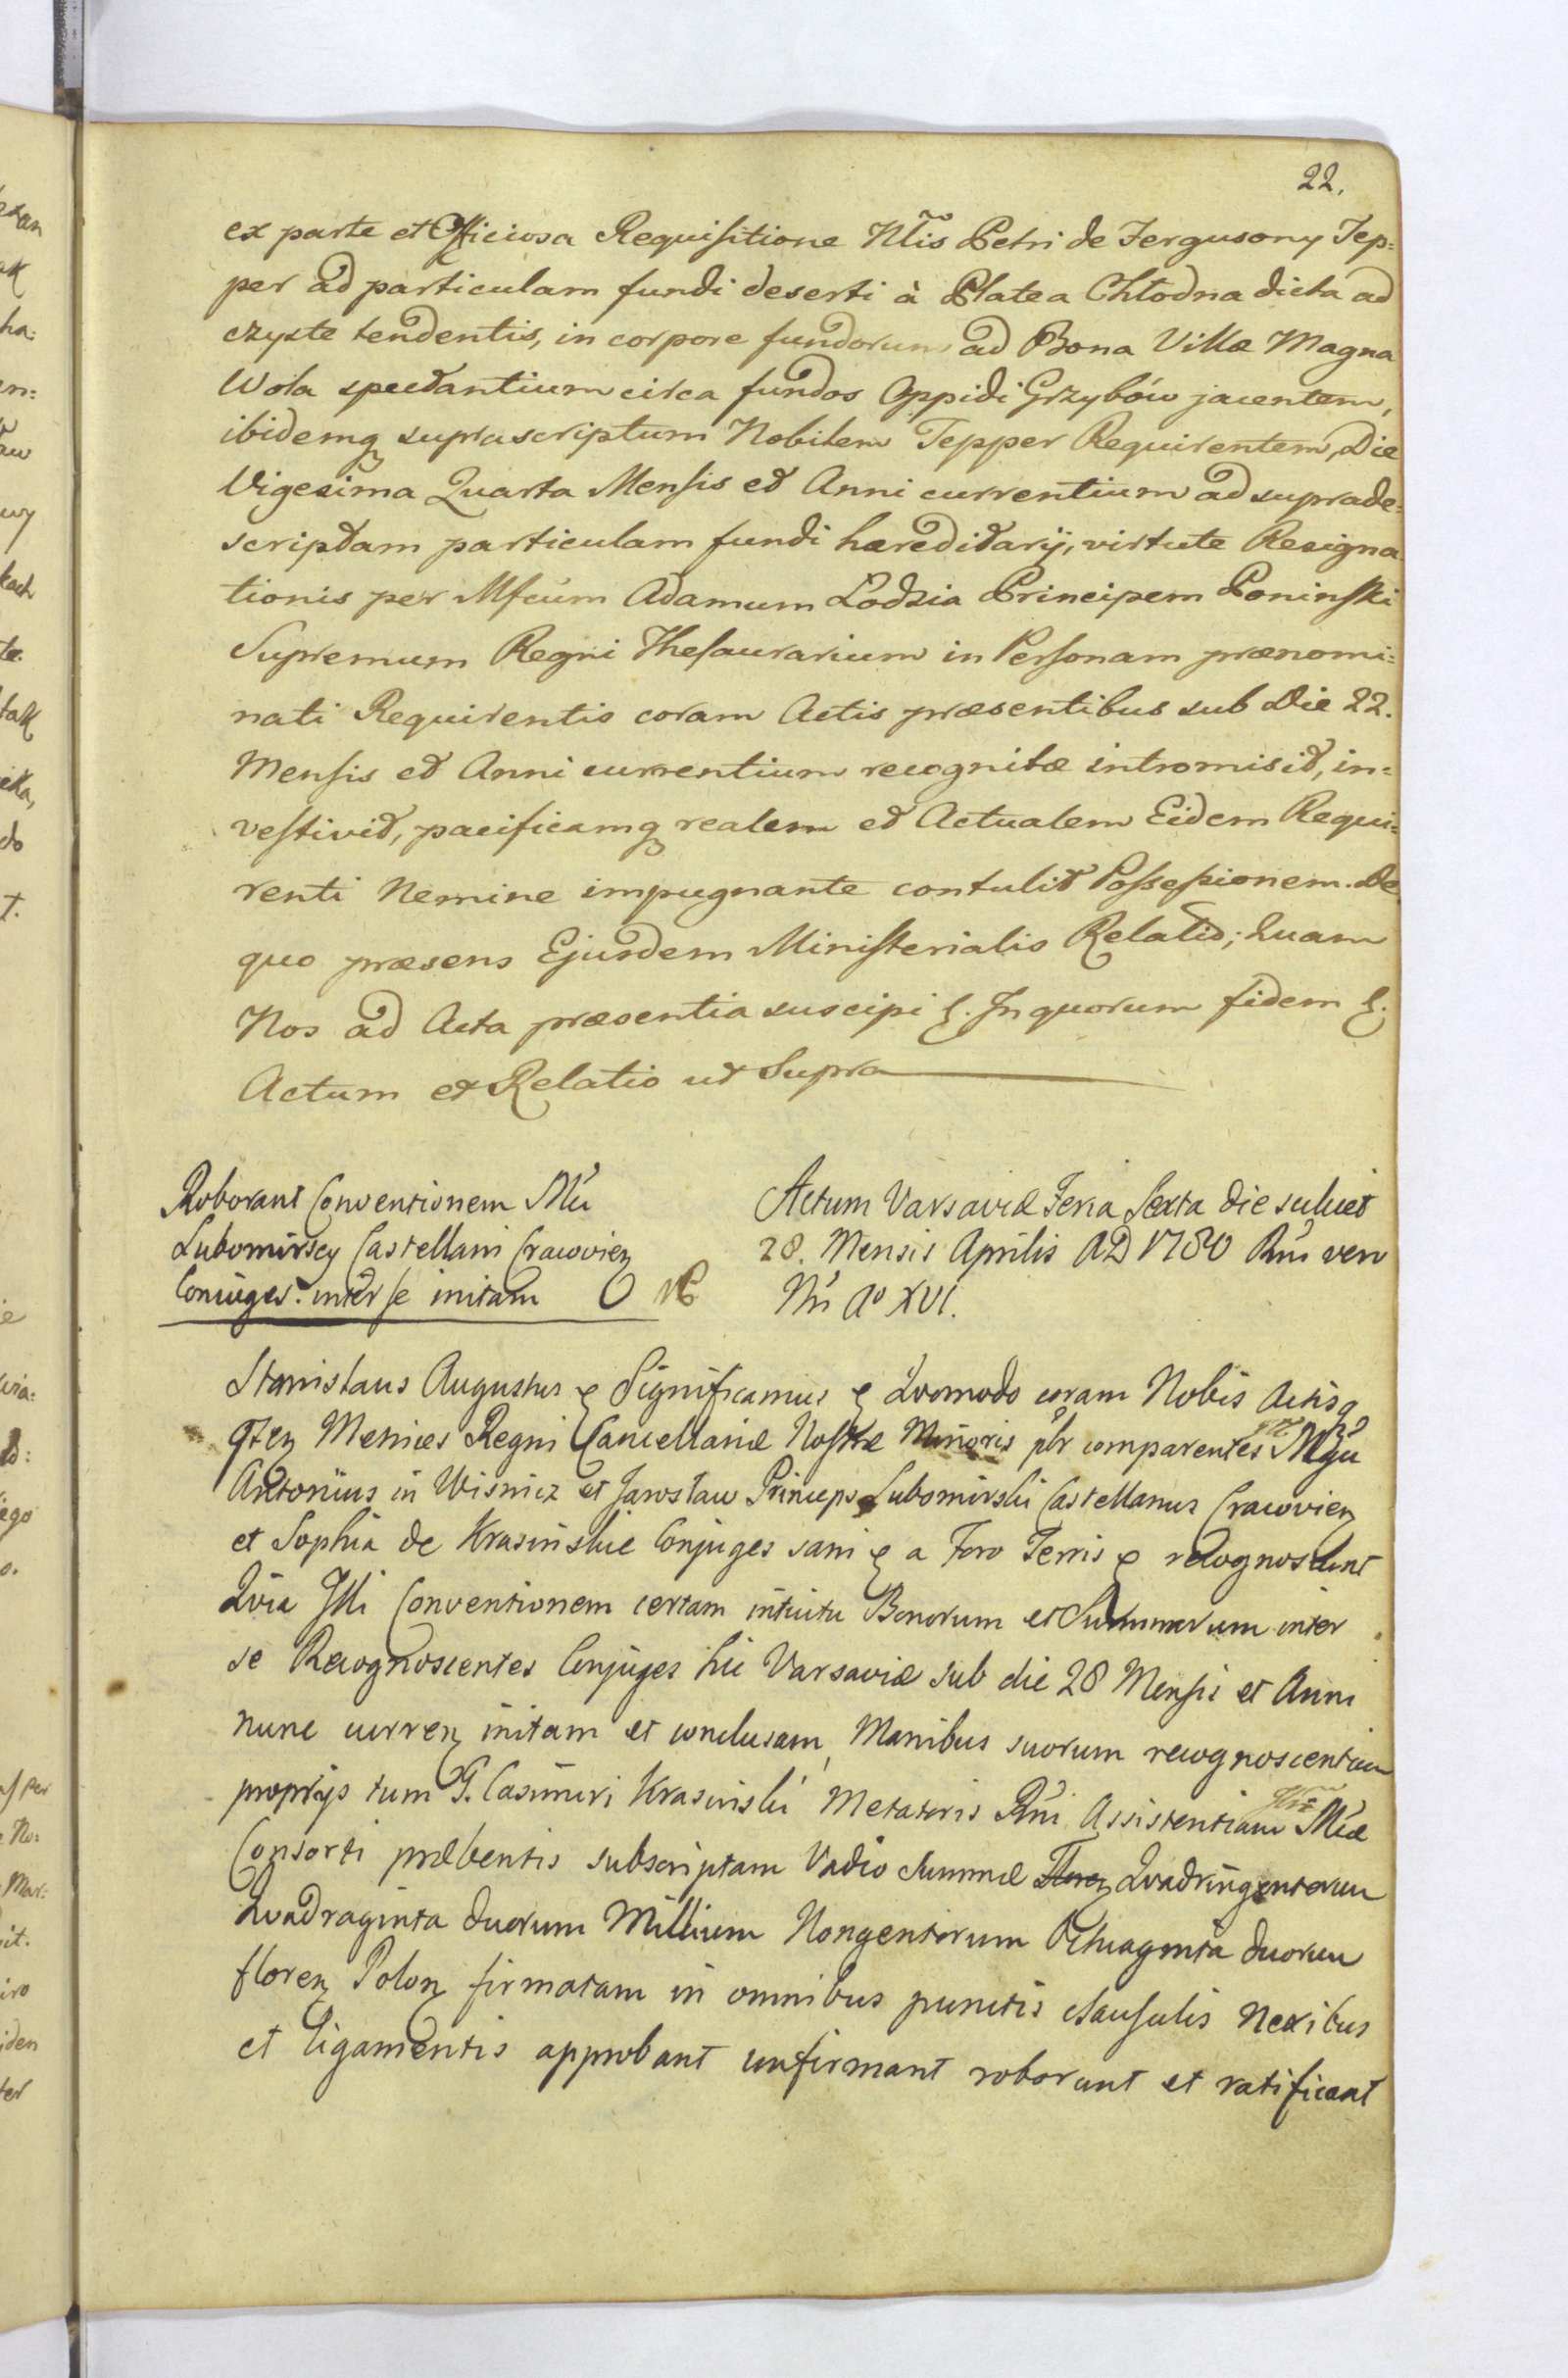 22.
ex parte et Officiosa Requisitione Nłis Petri de Fergusony Tep=
per ad particulam fundi deserti à Platea Chłodna dicta ad
czyste tendentis, in corpore fundorum ad Bona Villæ Magna
Wola spectantium circa fundos Oppidi Grzybów jacentem,
ibidemq suprascriptum Nobilem Tepper Requirentem, Die
Vigesima Quarta Mensis et Anni currentium ad suprade=
scriptam particulam fundi hæreditarij, virtute Resigna
tionis per Mfcum Adamum Łodzia Principem Poninski
Supremum Regni Thesaurarium in Personam prænomi=
nati Requirentis coram Actis præsentibus sub Die 22.
Mensis et Anni currentium recognitæ intromisit, in=
vestivit, pacificamq realem et Actualem Eidem Requi=
renti Nemine impugnante contulit Possessionem. De
quo præsens Ejusdem Ministerialis Relatio; Quam
Nos ad Acta præsentia suscipi &. In quorum fidem &.
Actum et Relatio ut Supra
Roborant Conventionem Mci
Lubomirscy Castellani Cracovien
Conjuges inter se initam
Actum Varsaviæ Feria Sexta die scilicet
28. Mensis Aprilis AD 1780 Rni vero
Nri Ao XVI.
Stanislaus Augustus & Significamus & Quomodo coram Nobis Actisq
Metrices Regni Cancellariæ Nostræ Minoris plr comparentes
Antonius in Wisnicz et Jarosław Princeps Lubomirski Castellanus Cracovien
et Sophia de Krasinskie Conjuges sani & a Foro Terris & recognoscunt
Quia Illi Conventionem certam intuitu Bonorum et Summarum inter
se Recognoscentes Conjuges hic Varsaviæ sub die 28 Mensis et Anni
nunc curren initam et conclusam, Manibus suorum recognoscentium
proprijs tum G. Casimiri Krasinski Metatoris Rni Assistentiam Mcæ
Consorti præbentis subscriptam Vadio Summæ Quadringentorum
Quadraginta duorum Millium Nongentorum Octuaginta duorum
floren Polon firmatam in omnibus punctis clausulis Nexibus
et ligamentis approbant confirmant roborant et ratificant